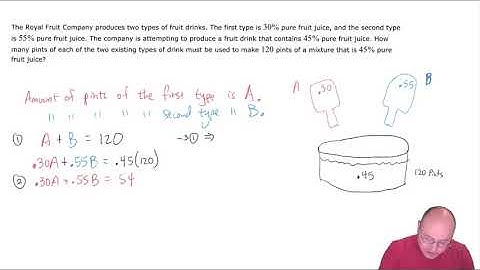 The Royal Fruit Company produces two types of fruit drinks. The first type is 30% pure fruit juice, and the second type
is 55% pure fruit juice. The company is attempting to produce a fruit drink that contains 45% pure fruit juice. How
many pints of each of the two existing types of drink must be used to make 120 pints of a mixture that is 45% pure
fruit juice?
Amount of pints of the first type is A.
" " " " " second type " B.
① A + B = 120 -.3① ⇒
.30A + .55B = .45(120)
② .30A + .55B = 54
A .30 .55 B
.45 120 Pints